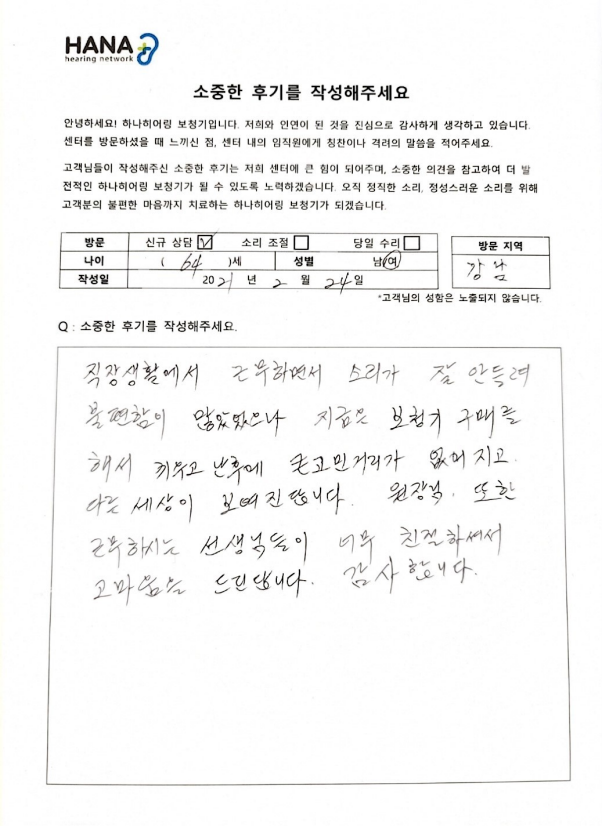 HANA
hearing network
소중한 후기를 작성해주세요
안녕하세요! 하나히어링 보청기입니다. 저희와 인연이 된 것을 진심으로 감사하게 생각하고 있습니다.
센터를 방문하셨을 때 느끼신 점, 센터 내의 임직원에게 칭찬이나 격려의 말씀을 적어주세요.
고객님들이 작성해주신 소중한 후기는 저희 센터에 큰 힘이 되어주며, 소중한 의견을 참고하여 더 발
전적인 하나히어링 보청기가 될 수 있도록 노력하겠습니다. 오직 정직한 소리, 정성스러운 소리를 위해
고객분의 불편한 마음까지 치료하는 하나히어링 보청기가 되겠습니다.
방문 신규 상담 ☑ 소리 조절 □ 당일 수리 □
나이 ( 64 )세 성별 남/여
작성일 2021 년 2 월 24일
방문 지역
강남
*고객님의 성함은 노출되지 않습니다.
Q : 소중한 후기를 작성해주세요.
직장생활에서 근무하면서 소리가 잘 안들려
불편함이 많았었으나 지금은 보청기 구매를
해서 끼우고 난후에 큰고민거리가 없어지고.
다른 세상이 보여진답니다. 원장님, 또한
근무하시는 선생님들이 너무 친절하셔서
고마움을 드린답니다. 감사합니다.